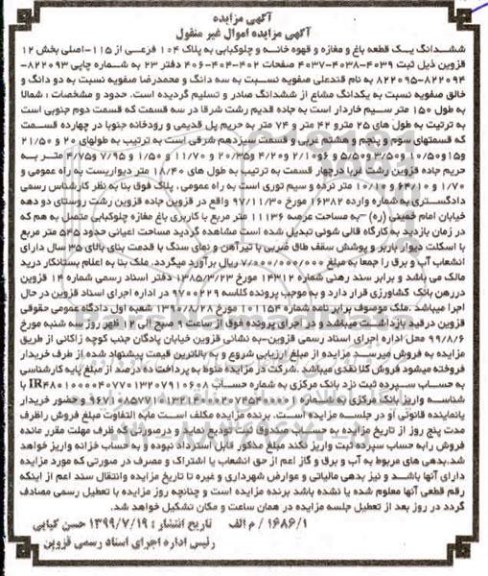 آگهی مزایده
آگهی مزایده اموال غیر منقول
ششدانگ یک قطعه باغ و مغازه و قهوه خانه و چلوکبابی به پلاک ۱۰۴ فرعی از ۱۱۵-اصلی بخش ۱۲
قزوین ذیل ثبت ۴۰۳۹-۴۰۳۸-۴۰۳۷ صفحات ۴۰۲-۴۰۴-۴۰۶ دفتر ۲۳ به شماره چاپی ۸۲۲۰۹۳-
۸۲۲۰۹۴-۸۲۲۰۹۵ به نام قندعلی صفویه نسبت به سه دانگ و محمدرضا صفویه نسبت به دو دانگ و
خالق صفویه نسبت به یکدانگ مشاع از ششدانگ صادر و تسلیم گردیده است. حدود و مشخصات : شمالا
به طول ۱۵۰ متر سیم خاردار است به جاده قدیم رشت شرقا در سه قسمت که قسمت دوم جنوبی است
به ترتیب به طول های ۲۵ مترو ۴۲ متر و ۷۴ متر به حریم پل قدیمی و رودخانه جنوبا در چهارده قسمت
که قسمتهای سوم و پنجم و هشتم غربی و قسمت سیزدهم شرقی است به ترتیب به طولهای ۲۰ و ۲۱/۵۰
حریم جاده قزوین رشت غربا درچهار قسمت به ترتیب به طول های ۱۱/۴۰ متر دیواریست به راه عمومی و
۱/۷۰ و ۱۰/۱۰ متر نرده و سیم توری است به راه عمومی. پلاک فوق بنا به نظر کارشناس رسمی
دادگستری به شماره وارده ۱۶۳۸۲ مورخ ۹۷/۱۱/۳۰ واقع در قزوین جاده قزوین رشت رستای دو دهه
خیابان امام خمینی (ره) –به مساحت عرصه ۱۱۱۳۶ متر مربع با کاربری باغ مغازه چلوکبابی متصل به هم که
در زمان بازدید به کارگاه قالی شوئی تبدیل شده است مشاهده گردید مساحت اعیانی حدود ۵۴۵ متر مربع
با اسکلت دیوار باربر و پوشش سقف طاق ضربی با تیرآهن و نمای سنگ با قدمت بنای بالای ۳۵ سال دارای
انشعاب آب و برق را جمعا به مبلغ ۷/۰۰۰/۰۰۰/۰۰۰ ریال برآورد میگردد. ملک بنا به اعلام بستانکار در ید
مالک می باشد و برابر سند رهنی شماره ۱۴۳۱۲ مورخ ۱۳۸۵/۳/۲۳ دفتر اسناد رسمی شماره ۱۴ قزوین
دررهن بانک کشاورزی قرار دارد و به موجب پرونده کلاسه ۹۷۰۰۲۲۹ در اداره اجرای اسناد قزوین در حال
اجرا میباشد. ملک موصوف برابر نامه شماره ۱۰۰۱۱۵۴ مورخ ۱۳۹۷/۸/۲۸ شعبه اول دادگاه عمومی حقوقی
قزوین درقید بازداشت میباشد و در اجرای پرونده فوق از ساعت ۹ صبح الی ۱۲ ظهر روز سه شنبه مورخ
۹۹/۸/۶ محل اداره اجرای اسناد رسمی قزوین–به نشانی قزوین خیابان پادگان جنب کوچه زاکانی از طریق
مزایده به فروش میرسد مزایده از مبلغ ارزیابی شروع و به بالاترین قیمت پیشنهاد شده از طرف خریدار
فروخته میشود فروش کلا نقدی میباشد .شرکت در مزایده منوط به پرداخت ده درصد از مبلغ پایه کارشناسی
به حساب سپرده ثبت نزد بانک مرکزی به شماره حساب IR۴۸۰۱۰۰۰۰۴۰۷۷۰۱۳۲۰۷۹۱۰۶۰۸ با
شناسه واریز بانک مرکزی به شماره و حضور خریدار
یانماینده قانونی او در جلسه مزایده است. برنده مزایده مکلف است مابه التفاوت مبلغ فروش راظرف
مدت پنج روز از تاریخ مزایده به حساب صندوق ثبت تودیع نماید و درصورتی که ظرف مهلت مقرر مانده
فروش رابه حساب سپرده ثبت واریز نکند مبلغ مذکور قابل استرداد نبوده و به حساب خزانه واریز خواهد
شد.بدهی های مربوط به آب و برق و گاز اعم از حق انشعاب یا اشتراک و مصرف در صورتی که مورد مزایده
دارای آنها باشد و نیز بدهی مالیاتی و عوارض شهرداری و غیره تا تاریخ مزایده وانتقال سند اعم از اینکه
رقم قطعی آنها معلوم شده یا نشده باشد برنده مزایده است و چنانچه روز مزایده با تعطیل رسمی مصادف
گردد در روز بعد از تعطیل جلسه مزایده در همان ساعت و مکان تشکیل خواهد شد.
۱۶۸۶/۱ / م الف تاریخ انتشار : ۱۳۹۹/۷/۱۹ حسن کبابی
رئیس اداره اجرای اسناد رسمی قزوین